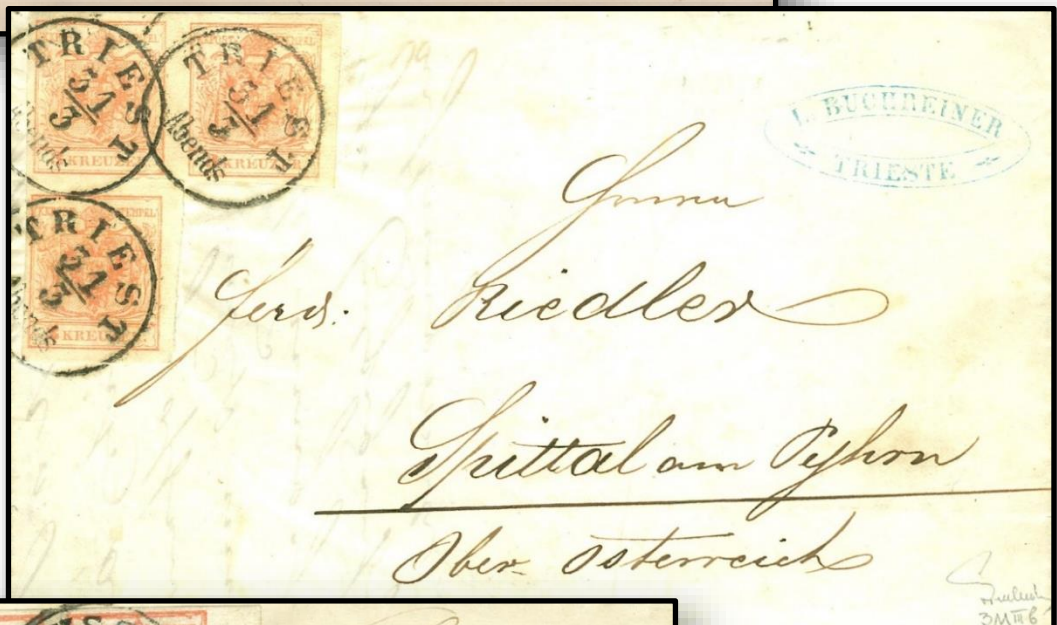 TRIEST
31/3
Abends
KREUZER
TRIEST
31/3
Abends
KREUZE
TRIEST
31/3
KREUZ
L. BUCHREINER
TRIESTE
Herrn
Ferd. Riedler
Spittal am Pyhrn
Ober-Osterreich
3M III b